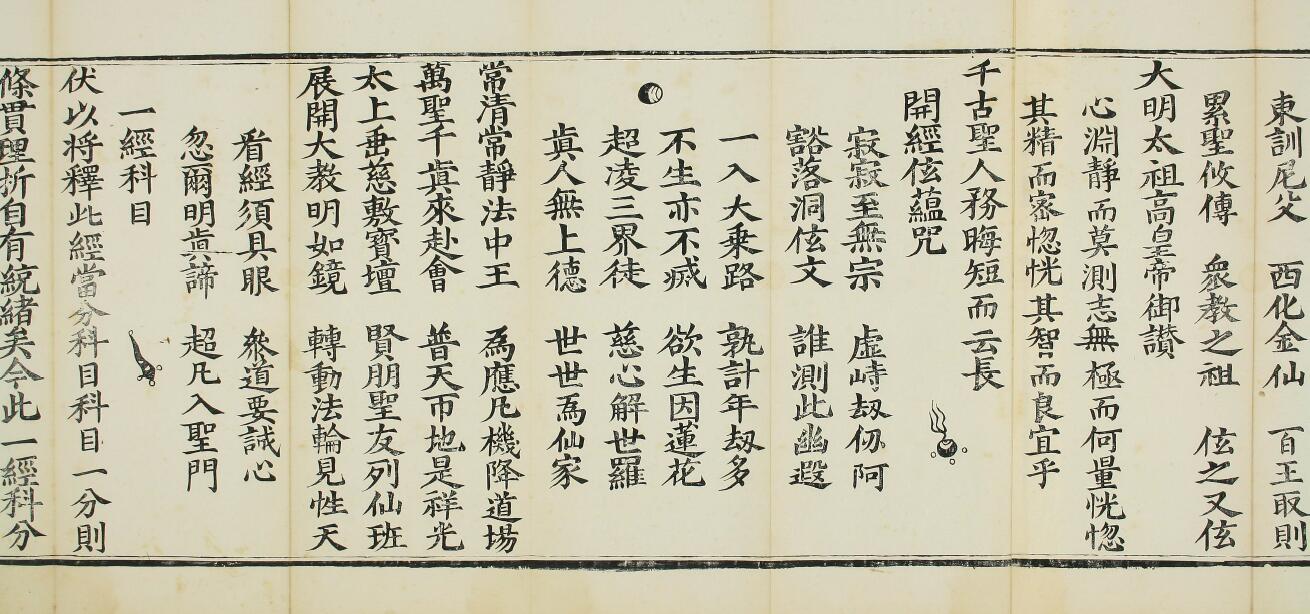 東訓尼父　西化金仙　百王取則
累聖攸傳　衆教之祖　伭之又伭
大明太祖高皇帝御讃
心淵靜而莫測志無極而何量恍惚
其精而宻惚恍其智而良宜乎
千古聖人務晦短而云長
開經伭蘊咒
寂寂至無宗　虛峙刼仞阿
豁落洞伭文　誰測此幽遐
一入大乗路　孰計年刼多
不生亦不烕　欲生因蓮花
超凌三界徒　慈心解世羅
眞人無上德　世世為仙家
常清常靜法中王　為應凡機降道場
萬聖千眞來赴會　普天帀地是祥光
太上垂慈敷寳壇　賢朋聖友列仙班
展開大教明如鏡　轉動法輪見性天
看經須具眼　叅道要誠心
忽爾明眞諦　超凡入聖門
一經科目
伏以将釋此經當分科目科目一分則
條貫理析自有統緒矣今此一經科分